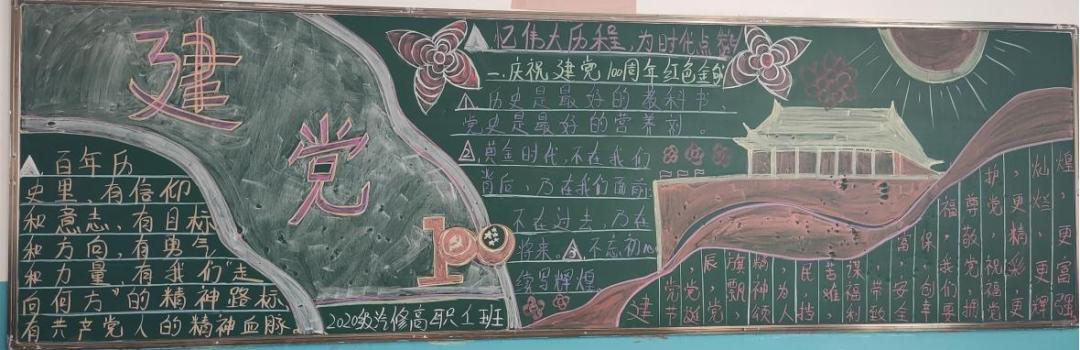 建党
百年历
史里、有信仰
和意志、有目标
和方向、有勇气
和力量,有我们“走
向何方”的精神路标
有共产党人的精神血脉。
100
2020级汽修高职1班
忆伟大历程,为时代点
一.庆祝建党100周年红色金
1.历史是最好的教科书,
党史是最好的营养剂。
2.黄金时代,不在我们
背后,乃在我们面前
不在过去,乃在
将来。3.不忘初心
续写辉煌
建党
党
辰
旗飘
精神
为人民
苦难
谋福利
带
安全
保
福
尊敬党
护
我们
祝福
更精彩
灿烂
更辉煌
更富强